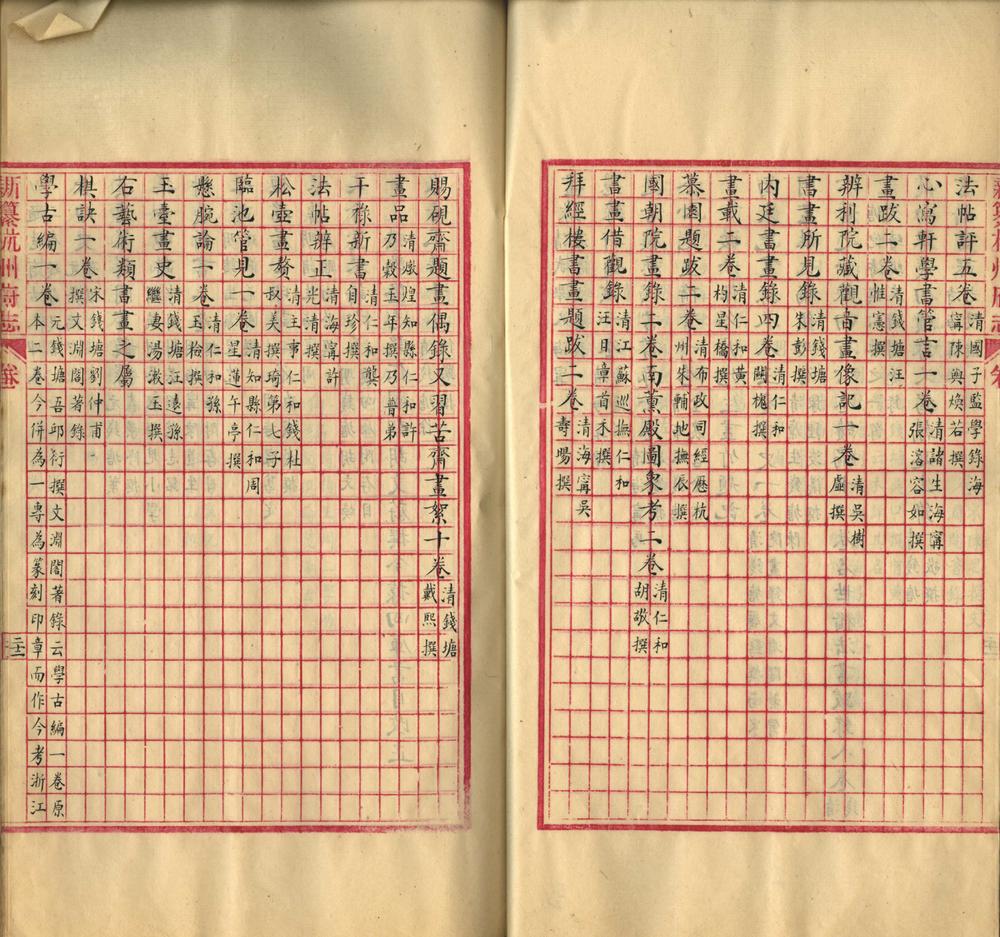 法帖評五卷 清國子監學錄海寧陳奐煥若撰
心寫軒學書管言一卷 清諸生海寧張溶容如撰
畫跋二卷 清錢塘汪惟憲撰
辨利院藏觀音畫像記一卷 清吳樹虛撰
書畫所見錄 清錢塘朱彭撰
內廷書畫錄四卷 清仁和關槐撰
畫載二卷 清仁和黃橋星杓撰
慕園題跋二卷 清布政司經歷杭州朱輔地撫辰撰
國朝院畫錄二卷南薰殿圖象考二卷 清仁和胡敬撰
書畫借觀錄 清江蘇巡撫仁和汪日章首禾撰
拜經樓書畫題跋二卷 清海寧吳壽暘撰
賜硯齋題畫偶錄又習苦齋畫絮十卷 清錢塘戴熙撰
畫品 清燉煌知縣仁和許乃穀玉年撰乃普弟
干祿新書 清仁和龔自珍撰
法帖辨正 清海寧許光清撰
松壺畫贅 清主事仁和錢杜叔美撰琦第七子
臨池管見一卷 清知縣仁和周星蓮午亭撰
懸腕論一卷 清仁和孫玉檢撰
玉臺畫史 清錢塘汪遠孫繼妻湯漱玉撰
右藝術類書畫之屬
棋訣一卷 宋錢塘劉仲甫撰文淵閣著錄
學古編一卷 元錢塘吾邱衍撰文淵閣著錄云學古編一卷原本二卷今併為一專為篆刻印章而作今考浙江
新纂杭州府志